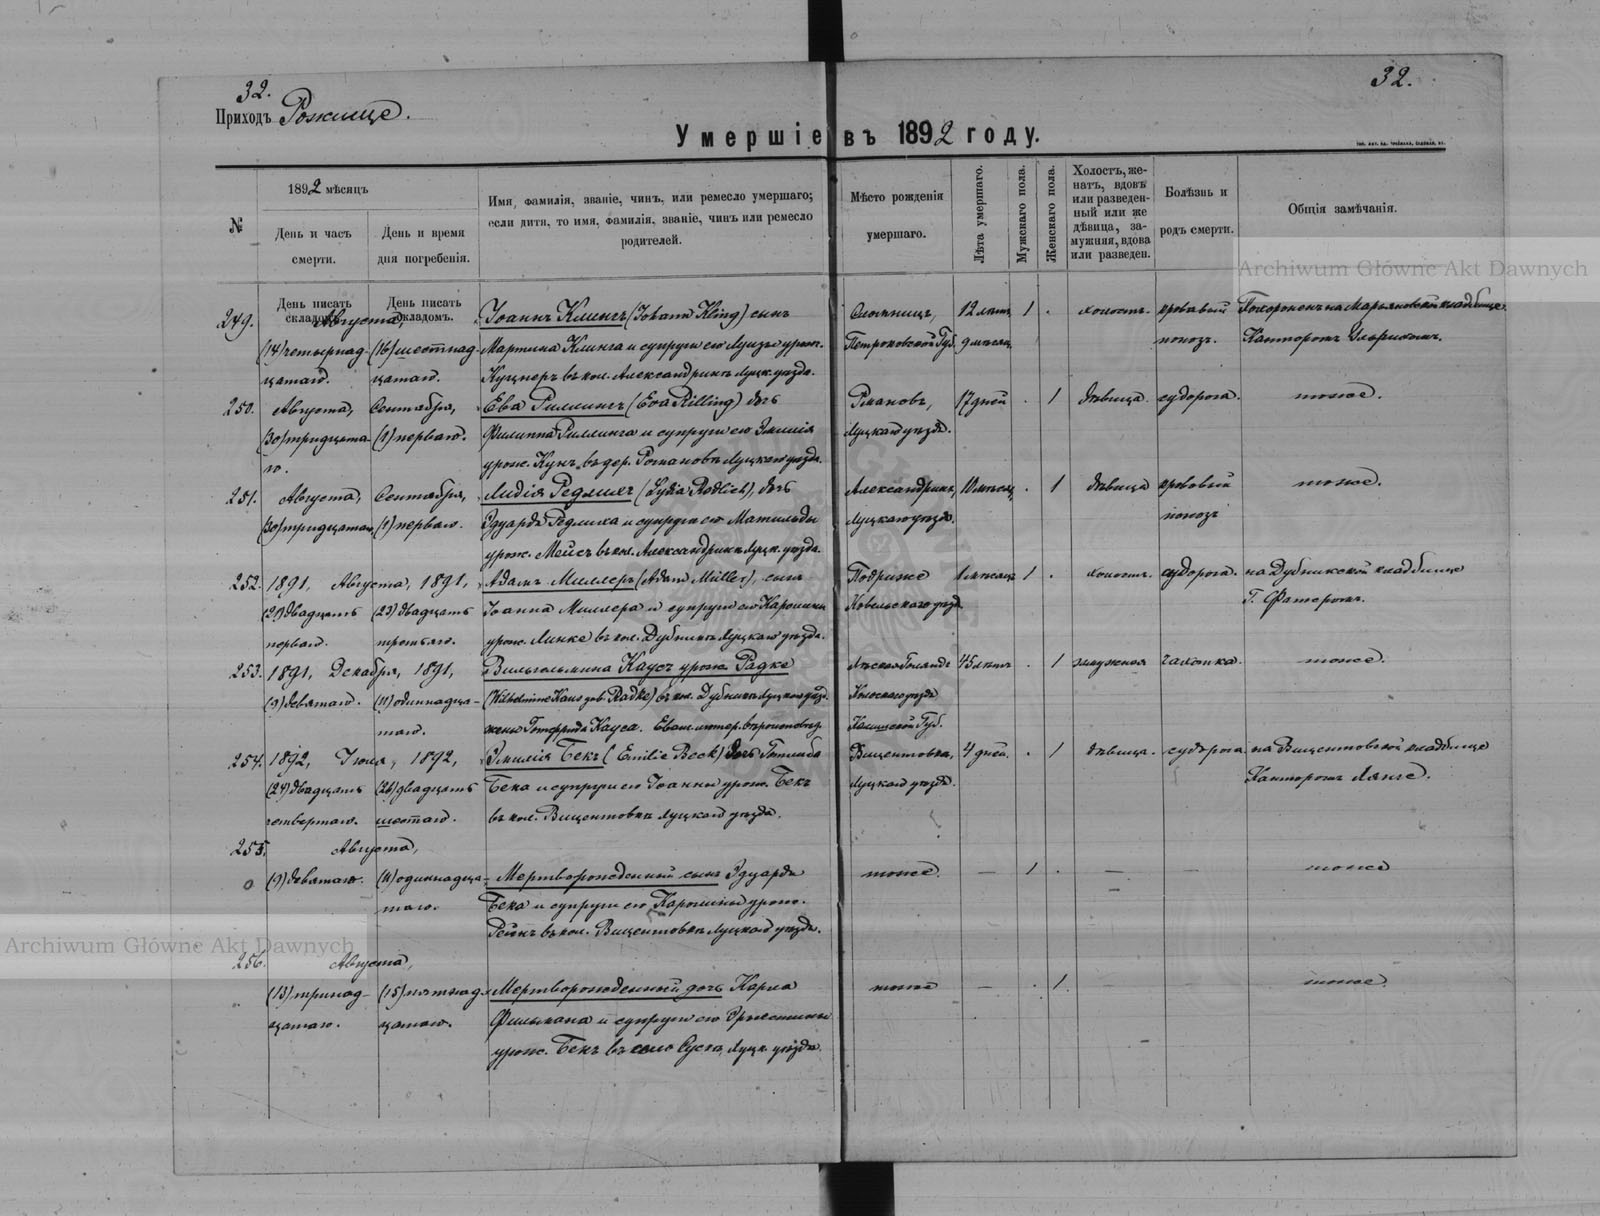 32.
32.
Приходъ Рожище.
Умершіе въ 1892 году.
№
1892 мѣсяцъ
День и часъ смерти.
День и время дня погребенія.
Имя, фамилія, званіе, чинъ, или ремесло умершаго;
если дитя, то имя, фамилія, званіе, чинъ или ремесло
родителей.
Мѣсто рожденія
умершаго.
Лѣта умершаго.
Мужскаго пола.
Женскаго пола.
Холостъ, же-
натъ, вдовъ
или разведен-
ный или же
дѣвица, за-
мужняя, вдова
или разведен.
Болѣзнь и
родъ смерти.
Общія замѣчанія.
День писать складомъ.
День писать складомъ.
249.
Августа,
(14) четырнад-
цатаго.
(16) шестнад-
цатаго.
Іоаннъ Клингъ (Johann Kling) сынъ
Мартина Клинга и супруги его Луизы урож.
въ кол. Александринъ Луцк. уѣзда.
Петроковской Губ.
12 лѣтъ
9 мѣсяц.
1
холостъ.
кровавый
поносъ.
Похороненъ на Марьяновской кладбище
Канторомъ
250.
Августа,
(30) тридцата-
го.
Сентября,
(1) перваго.
Ева Риллингъ (Eva Rilling) дочь
Филиппа Риллинга и супруги его Эмилія
урож. Кунъ въ дер. Романовъ Луцкаго уѣзда.
Романовъ,
Луцкаго уѣзда.
17 дней
1
дѣвица
судорога.
тоже.
251.
Августа,
(30) тридцатаго
Сентября,
(1) перваго.
Лидія Редлихъ (Lydia Redlich), дочь
Эдуарда Редлиха и супруги его Матильды
урож. Мейсъ въ кол. Александринъ Луцк. уѣзда.
Александринъ,
Луцкаго уѣзда.
10 мѣсяц.
1
дѣвица
кровавый
поносъ
тоже.
252.
1891, Августа, 1891,
(21) двадцать
перваго.
(23) двадцать
третьяго.
Адамъ Миллеръ (Adam Müller), сынъ
Іоанна Миллера и супруги его Каролины
урож. Линке въ кол. Дубникъ Луцкаго уѣзда.
Подриже
Ковельскаго уѣзда
1 мѣсяцъ
1
холостъ.
судорога.
на Дубникской кладбище
Г. Фатеромъ.
253.
1891, Декабря, 1891,
(9) девятаго.
(11) одиннадца-
таго.
Вильгельмина Каусъ урож. Радке
(Wilhelmine Kaus geb. Radke) въ кол. Дубникъ Луцкаго уѣзд.
жена Готфрида Кауса. Еванг. лютер. вѣроисповѣд.
Калишской Губ.
45 лѣтъ
1
замужняя
чахотка.
тоже.
254.
1892, Іюля, 1892,
(24) двадцать
четвертаго.
(26) двадцать
шестаго.
Эмилія Бекъ (Emilie Beck) дочь Готлиба
Бека и супруги его Іоанны урож. Бекъ
въ кол. Вицентовкѣ Луцкаго уѣзда.
Вицентовка,
Луцкаго уѣзда.
4 дней.
1
дѣвица.
судорога
на Вицентовской кладбище
Канторомъ Лянге.
255.
Августа,
(9) девятаго.
(11) одиннадца-
таго.
Мертворожденный сынъ Эдуарда
Бека и супруги его Каролины урож.
Рейнъ въ кол. Вицентовкѣ Луцкаго уѣзда.
тоже
—
1
—
—
тоже
256.
Августа,
(13) тринад-
цатаго.
(15) пятнад-
цатаго.
Мертворожденный дочь Карла
и супруги его Эрнестины
урож. Бекъ въ село Суска, Луцк. уѣзда.
тоже
—
1
—
—
тоже.
Archiwum Główne Akt Dawnych
Archiwum Główne Akt Dawnych